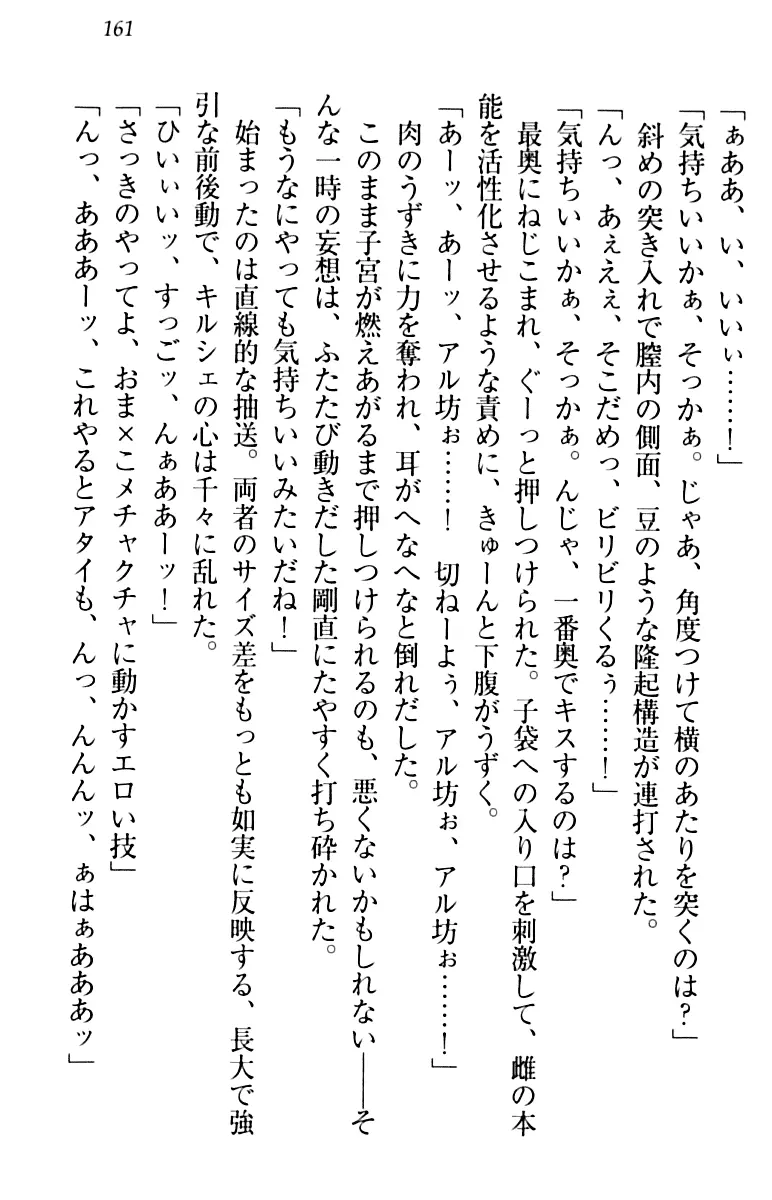 161
「ぁああ、い、いいぃ……！」
「気持ちいいかぁ、そっかぁ。じゃあ、角度つけて横のあたりを突くのは？」
斜めの突き入れで膣内の側面、豆のような隆起構造が連打された。
「んっ、あぇえぇ、そこだめっ、ビリビリくるぅ……！」
「気持ちいいかぁ、そっかぁ。んじゃ、一番奥でキスするのは？」
最奥にねじこまれ、ぐーっと押しつけられた。子袋への入り口を刺激して、雌の本
能を活性化させるような責めに、きゅーんと下腹がうずく。
「あーッ、あーッ、アル坊ぉ……！　切ねーよぅ、アル坊ぉ、アル坊ぉ……！」
肉のうずきに力を奪われ、耳がへなへなと倒れだした。
このまま子宮が燃えあがるまで押しつけられるのも、悪くないかもしれない――そ
んな一時の妄想は、ふたたび動きだした剛直にたやすく打ち砕かれた。
「もうなにやっても気持ちいいみたいだね！」
始まったのは直線的な抽送。両者のサイズ差をもっとも如実に反映する、長大で強
引な前後動で、キルシェの心は千々に乱れた。
「ひいぃいッ、すっごッ、んぁああーッ！」
「さっきのやってよ、おま×こメチャクチャに動かすエロい技」
「んっ、あああーッ、これやるとアタイも、んっ、んんんッ、ぁはぁあああッ」